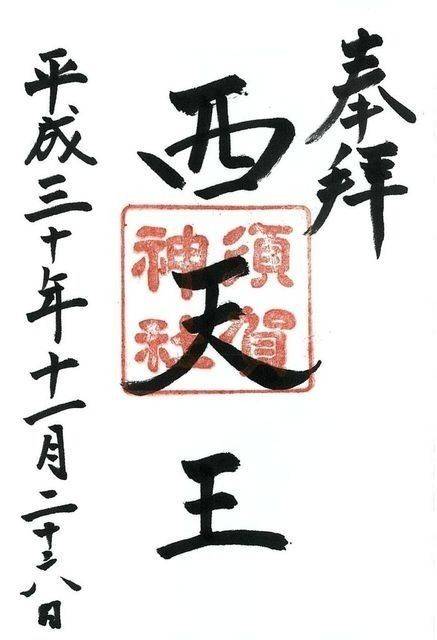 奉拝
西天王
須賀
神社
平成三十年十一月二十八日